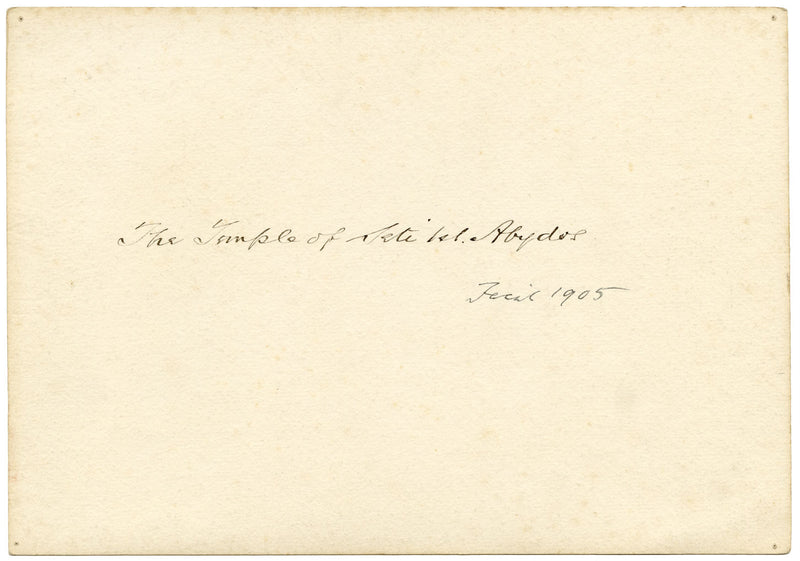 The Temple of Seti 1st. Abydos
Fecit 1905